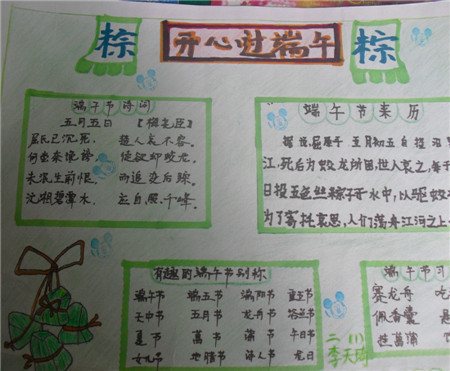 粽 开心过端午 粽
端午节诗词
五月五日 【梅尧臣】
屈氏已沉死， 楚人哀不容。
何尝奈谗谤， 徒欲却蛟龙。
未泯生前恨， 而追没后踪。
沈湘碧潭水， 应自照千峰。
端午节来历
据说屈原于五月初五自投汨
江，死后为蛟龙所困，世人哀之，每于
日投五色丝粽子于水中，以驱蛟
为了寄托哀思，人们荡舟江河之上
有趣的端午节别称
端午节 端五节 端阳节 重五节
天中节 五月节 龙舟节 浴兰节
夏节 菖节 蒲节 午日节
女儿节 地腊节 诗人节 龙日
二（1）
李天琦
端午节习
赛龙舟 吃
佩香囊 悬